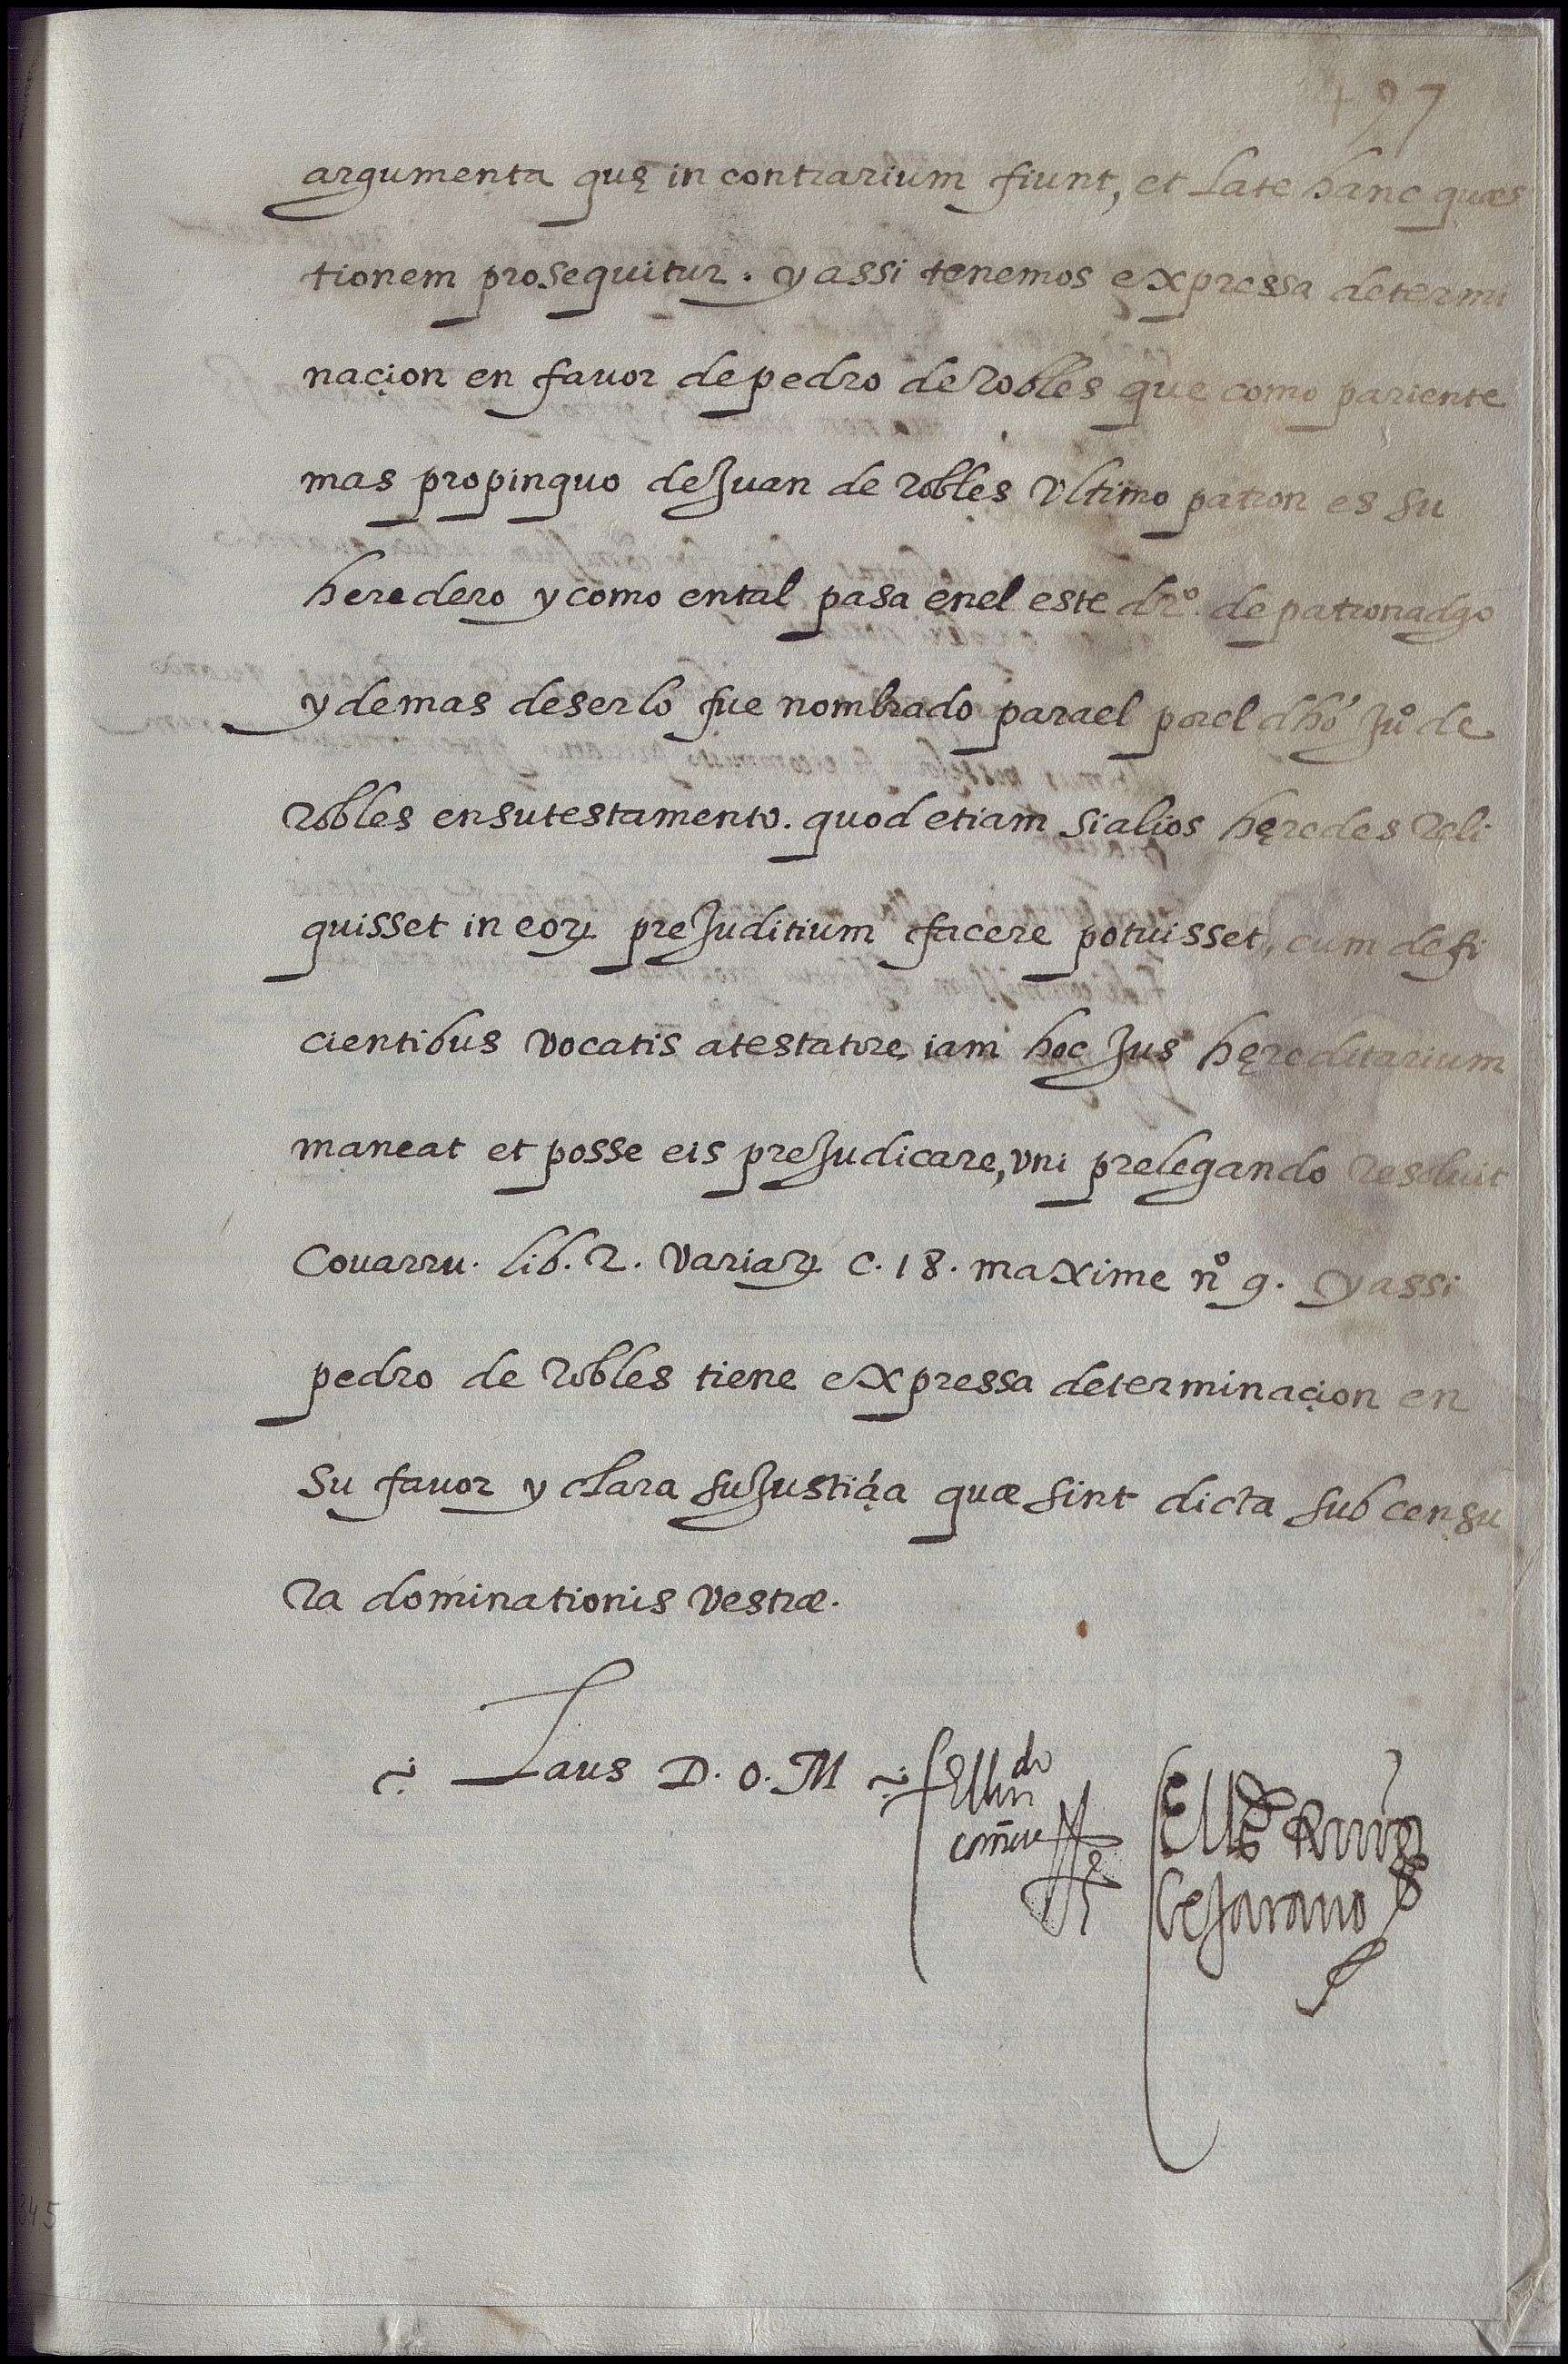 497
argumenta quę in contrarium fiunt, et late hanc quæs
tionem prosequitur. y assi tenemos expressa determi
naçion en fauor de pedro de robles que como pariente
mas propinquo de Juan de robles vltimo patron es su
heredero y como en tal pasa enel este dr̃o. de patronadgo
y demas deserlo fue nombrado parael porel dhõ Juº de
robles ensutestamento. quod etiam si alios hęredes reli
quisset in eorꝝ preJuditium facere potuisset, cum defi
cientibus vocatis atestatore iam hoc Jus hęreditarium
maneat et posse eis preJudicare, vni prelegando resoluit
Couarru. lib. 2. variarꝝ c. 18. maxime nº 9. y assi
pedro de robles tiene expressa determinaçion en
su fauor y clara suJustiçia quæ sint dicta sub censu
ra dominationis vestræ.
Laus D. O. M
El licdo
Ell do Ruiz
beJarano
345